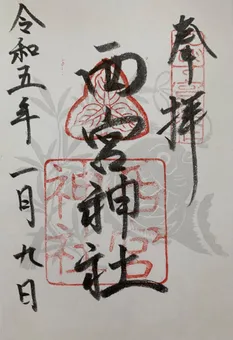 奉拝
西宮神社
西宮
神社
令和五年 一月九日